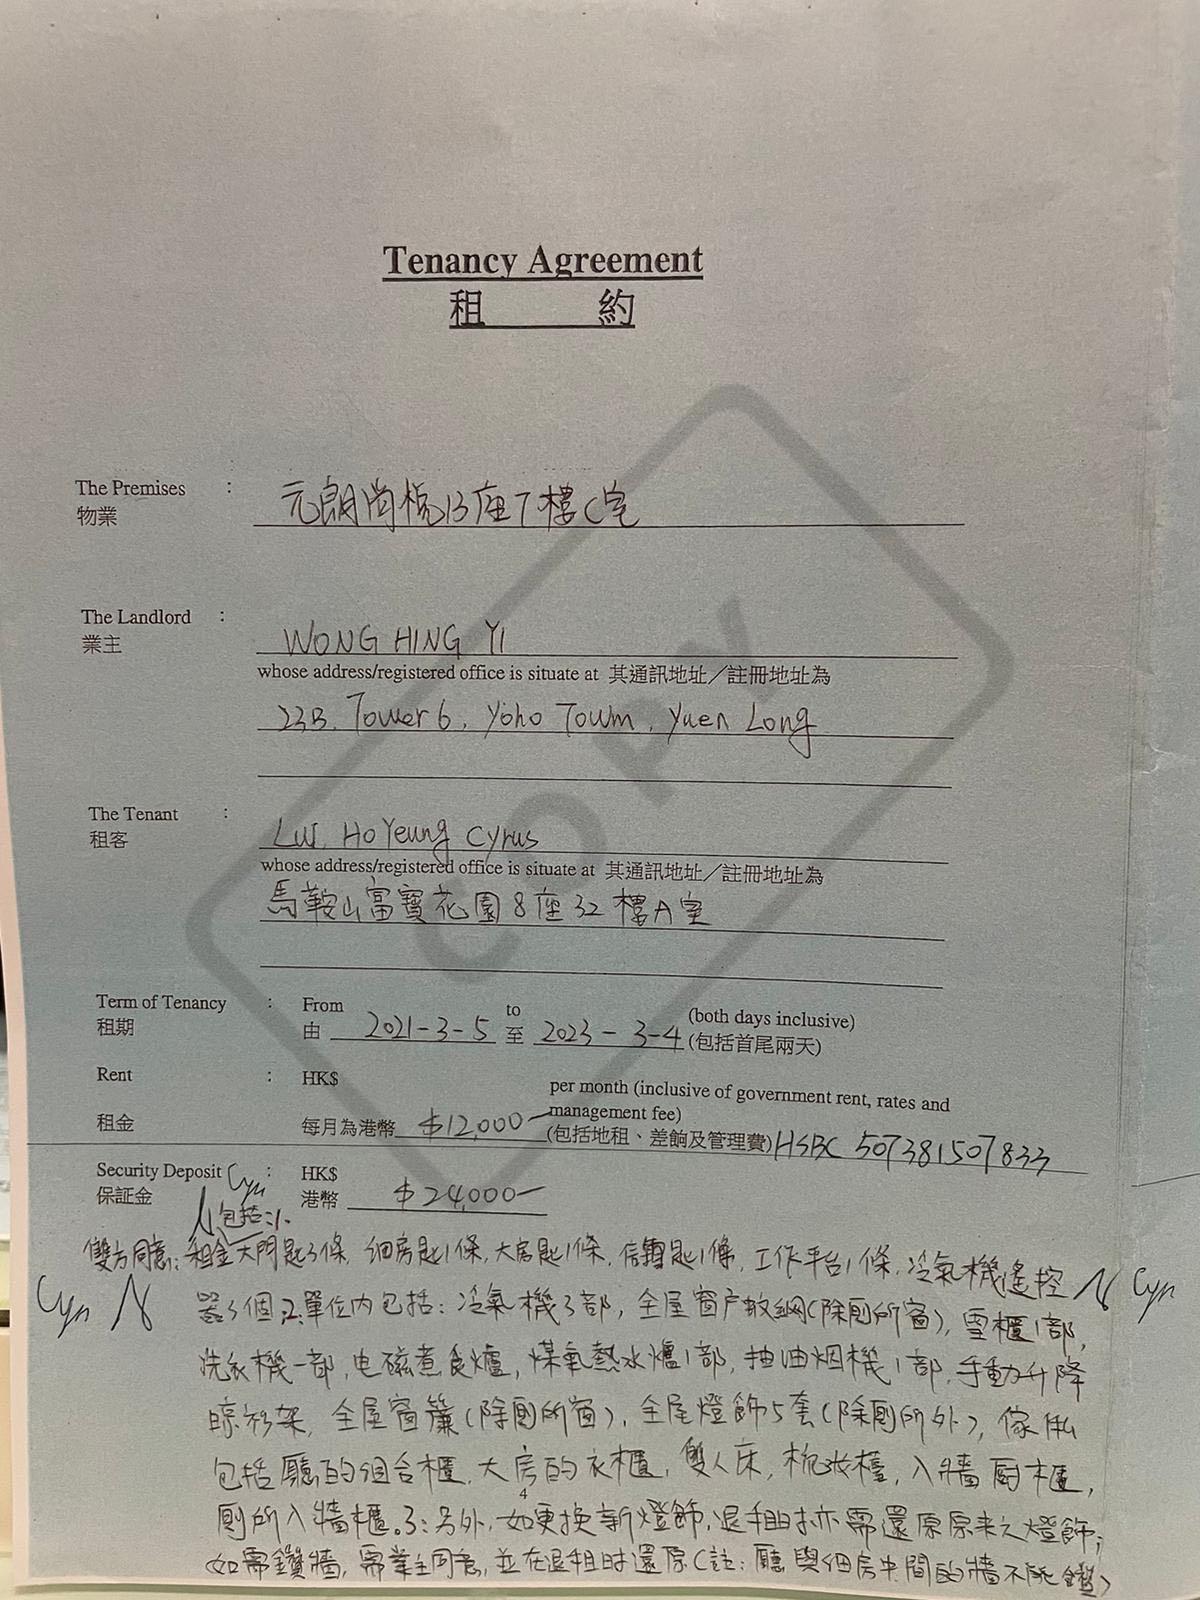 Tenancy Agreement
租 約
The Premises :
物業 元朗尚悅13座7樓C室
The Landlord :
業主 WONG HING YI
whose address/registered office is situate at 其通訊地址／註冊地址為
23B, Tower 6, Yoho Town, Yuen Long
The Tenant :
租客 LUI, Ho Yeung Cyrus
whose address/registered office is situate at 其通訊地址／註冊地址為
馬鞍山富寶花園8座32樓A室
Term of Tenancy : From to (both days inclusive)
租期 由 2021-3-5 至 2023-3-4 (包括首尾兩天)
Rent : HK$ per month (inclusive of government rent, rates and
management fee)
租金 每月為港幣 $12,000- (包括地租、差餉及管理費) HSBC 507381507833
Security Deposit : HK$
保証金 港幣 $24,000-
包括:1.
雙方同意: 租金大門匙3條, 細房匙1條, 大房匙1條, 信箱匙1條, 工作平台1條, 冷氣機遙控
器3個; 2. 單位內包括: 冷氣機3部, 全屋窗戶蚊網(除厠所窗), 雪櫃1部,
洗衣機一部, 电磁煮食爐, 煤氣熱水爐1部, 抽油烟機1部, 手動升降
晾衫架, 全屋窗簾(除厠所窗), 全屋燈飾5套(除厠所外), 傢俬
包括廳的組合櫃, 大房的衣櫃, 雙人床, 梳妝檯, 入牆厨櫃,
厠所入牆櫃。3: 另外, 如更換新燈飾, 退租時亦需還原原來之燈飾;
4
如需鑽牆, 需業主同意, 並在退租時還原(註: 廳與細房中間的牆不能鑽)
Cyn
Cyn
Cyn